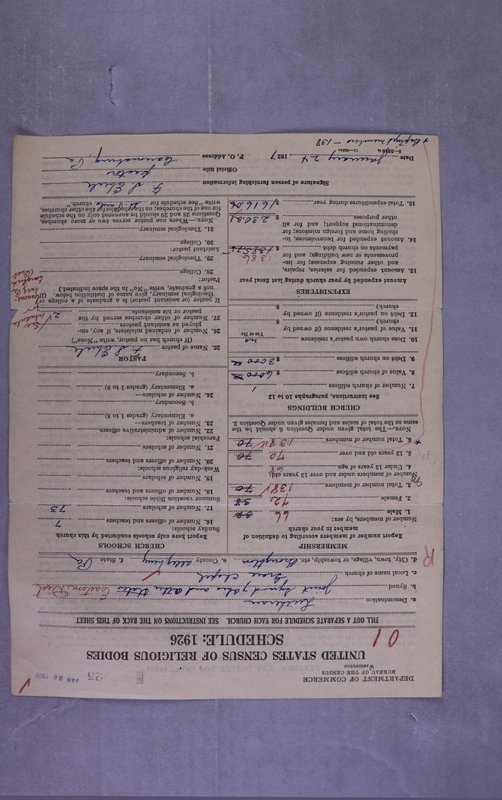 DEPARTMENT OF COMMERCE
BUREAU OF THE CENSUS
WASHINGTON
UNITED STATES CENSUS OF RELIGIOUS BODIES
SCHEDULE: 1926
01
FILL OUT A SEPARATE SCHEDULE FOR EACH CHURCH. SEE INSTRUCTIONS ON THE BACK OF THIS SHEET
a. Denomination Lutheran
b. Synod Joint Synod Ohio and other States Eastern Dist
c. Local name of church Grace Chapel
d. City, town, village, or township, etc. County Allegheny State Pa
MEMBERSHIP
Report number of members according to definition of
member in your church
Number of members, by sex:
1. Male 66
2. Female 72 38
3. Total number of members 138 70
Number of members under and over 13 years old:
4. Under 13 years of age 68
5. 13 years old and over 70 70
6. Total number of members 138 70
NOTE.—The total given under Question 6 should be the
same as the total of males and females given under Question 3.
CHURCH BUILDINGS
See instructions, paragraphs 10 to 12
7. Number of church edifices 1
8. Value of church edifices $ 6000
9. Debt on church edifices $ 3000
10. Does church own pastor's residence? no
Yes or No
11. Value of pastor's residence (if owned by
church) $
12. Debt on pastor's residence (if owned by
church) $
EXPENDITURES
Amount expended by your church during last fiscal year
13. Amount expended for salaries, repairs,
and other running expenses; for im-
provements or new buildings; and for
payments on church debt $ 1386
14. Amount expended for benevolences, in-
cluding home and foreign missions; for
denominational support; and for all
other purposes $ 230.31
15. Total expenditures during year $ 1616.06
CHURCH SCHOOLS
Report here only schools conducted by this church
Sunday schools:
16. Number of officers and teachers 7
17. Number of scholars 73
Summer vacation Bible schools:
18. Number of officers and teachers
19. Number of scholars
Week-day religious schools:
20. Number of officers and teachers
21. Number of scholars
Parochial schools:
22. Number of administrative officers
23. Number of teachers—
a. Elementary (grades 1 to 8)
b. Secondary
24. Number of scholars—
a. Elementary (grades 1 to 8)
b. Secondary
PASTOR
25. Name of pastor
(If church has no pastor, write "None")
26. Number of ordained ministers, if any, em-
ployed as assistant pastors
27. Number of other churches served by the
pastor or his assistants 2
If pastor (or assistant pastor) is a graduate of a college or
theological seminary, give name of institution below. (If
not a graduate, write "No" in the space indicated.)
Pastor:
28. College
29. Theological seminary
Assistant pastor:
30. College
31. Theological seminary
NOTE.—Where one pastor serves two or more churches,
Questions 28 and 29 should be answered only on the schedule
for one of the churches; on the schedules of the other churches,
write "See schedule for church."
Signature of person furnishing information
Official title Pastor
P. O. Address Canonsburg, Pa
Date January 24, 1927
* Baptized members - 138